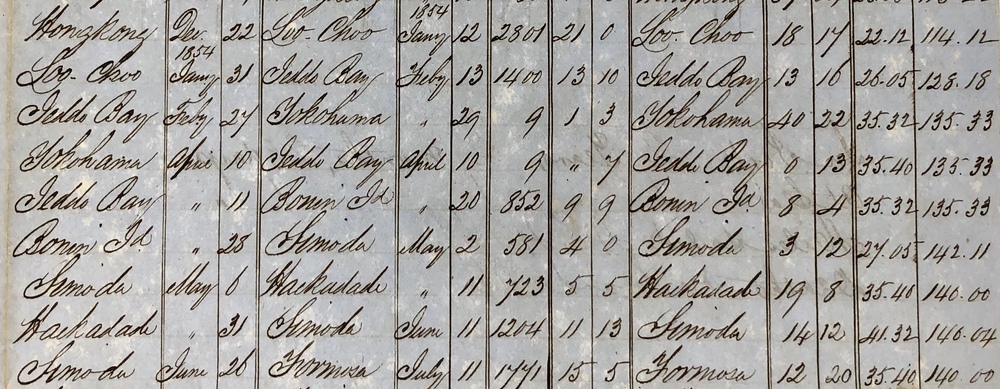 1854
Hongkong Dec. 22 Loo-Choo Jany 12 2801 21 0 Loo. Choo 18 17 22.12 114.12
1854
Loo-Choo Jany 31 Jeddo Bay Feby 13 1400 13 10 Jeddo Bay 13 16 26.05 128.18
Jeddo Bay Feby 27 Yokohama " 29 9 1 3 Yokohama 40 22 35.32 135.33
Yokohama April 10 Jeddo Bay April 10 9 " 7 Jeddo Bay 0 13 35.40 135.33
Jeddo Bay " 11 Bonin Id " 20 852 9 9 Bonin Id. 8 4 35.32 135.33
Bonin Id " 28 Simoda May 2 581 4 0 Simoda 3 12 27.05 142.11
Simoda May 6 Hackadade " 11 723 5 5 Hackadade 19 8 35.40 140.00
Hackadade " 31 Simoda June 11 1204 11 13 Simoda 14 12 41.32 140.04
Simoda June 26 Formosa July 11 1771 15 5 Formosa 12 20 35.40 140 00